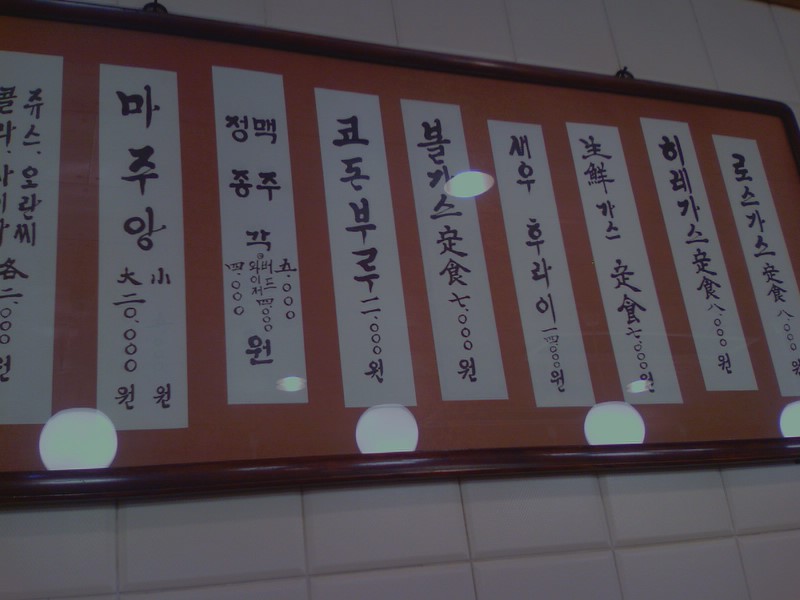 로스가스 定食 八.○○○ 원
히레가스 定食 八.○○○ 원
生鮮 가스 定食 七.○○○ 원
새우 후라이 一四○○○ 원
볼가스 定食 七.○○○ 원
코돈부루 二.○○○ 원
맥주 五.○○○
버드와이저 四.○○○
정종 四.○○○
각 원
마주앙
小 원
大 二○.○○○ 원
쥬스. 오란씨
콜라. 사이다 各 二.○○○ 원